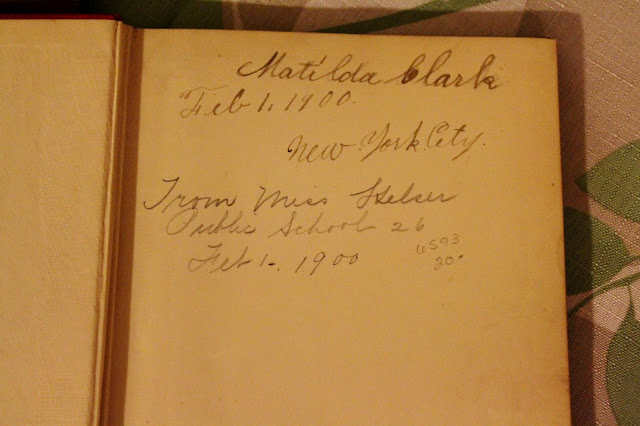 Matilda Clark
Feb 1, 1900.
New York City.
From Miss Helser
Public School 26
Feb 1-. 1900
6593
20-